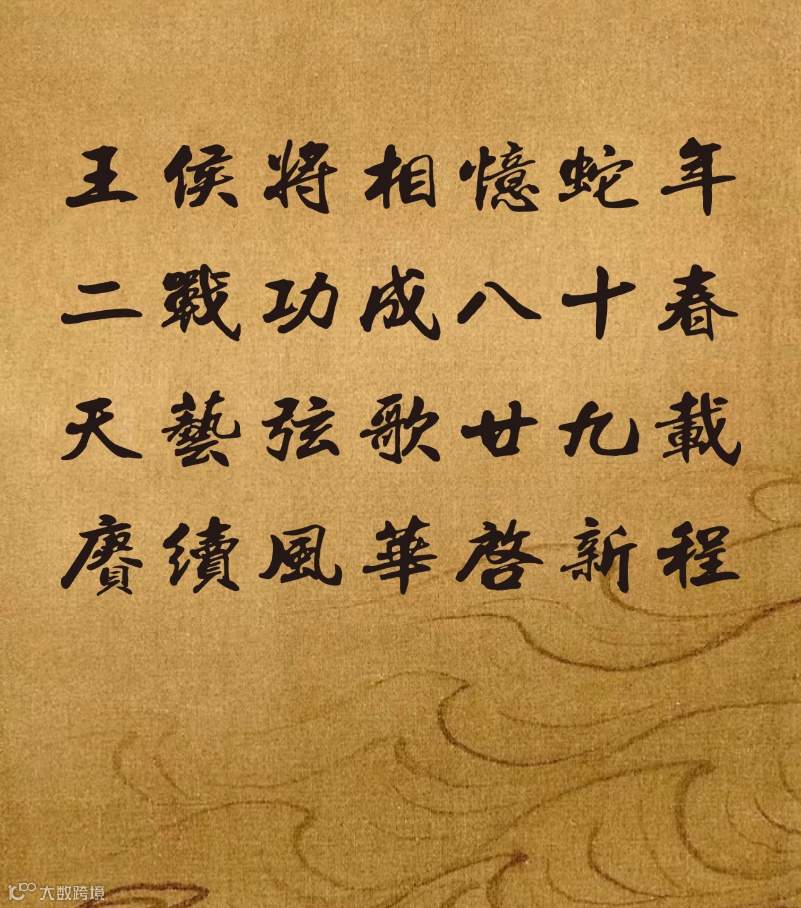 王侯將相憶蛇年
二戰功成八十春
天藝弦歌廿九載
賡續風華啓新程
大数跨境